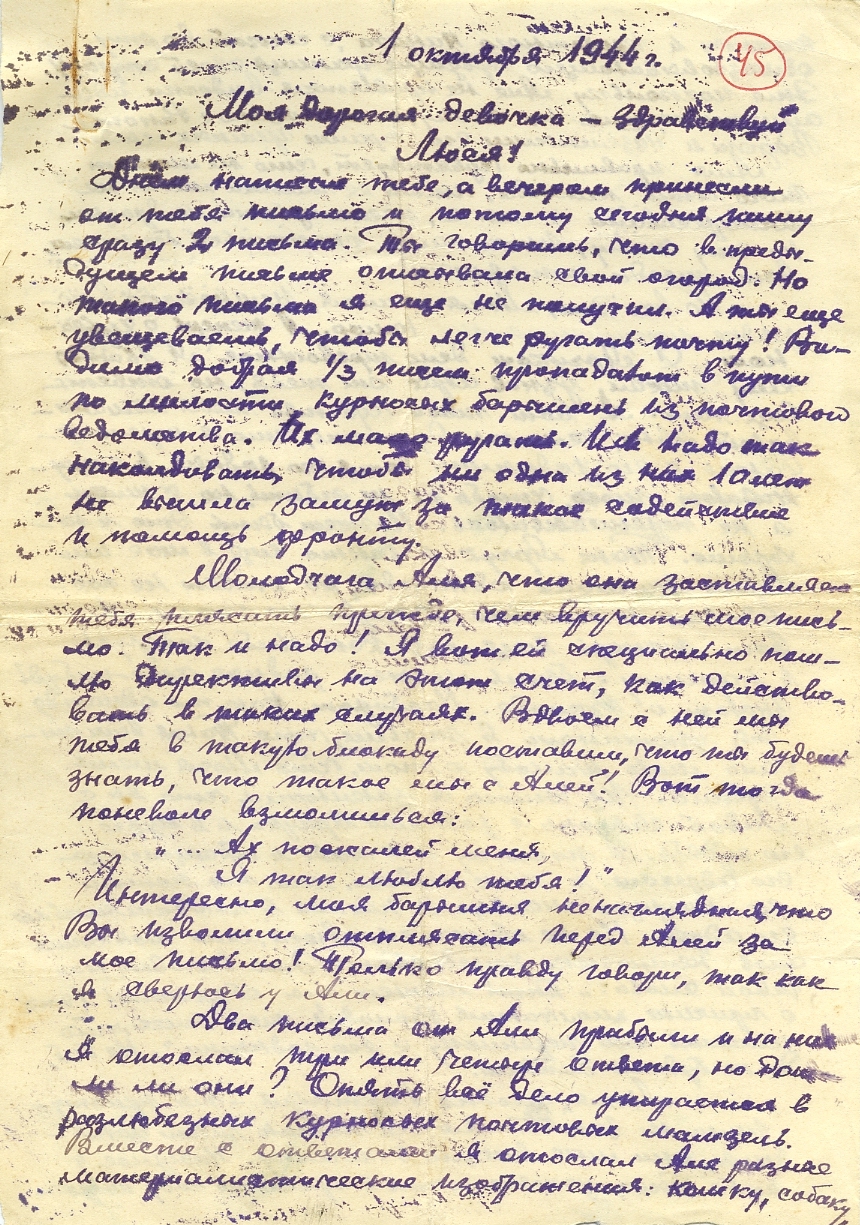 1 октября 1944 г.
45
Моя дорогая девочка – здравствуй
Люся!
Днём написал тебе, а вечером принесли
от тебя письмо и потому сегодня пишу
сразу 2 письма. Ты говоришь, что в преды-
дущем письме описывала свой огород. Но
такого письма я еще не получил. А ты еще
увещеваешь, чтобы легче ругать почту! Ви-
димо добрая 1/3 писем пропадает в пути
по милости курносых барышень из почтового
ведомства. Их мало ругать. Им надо так
наколдовать, чтобы ни одна из них 10 лет
не вышла замуж за такое содействие
и помощь фронту.
Молодчага Аля, что она заставляет
тебя плясать прежде, чем вручить мое пись-
мо. Так и надо! Я вот ей специально пош-
лю директивы на этот счет, как действо-
вать в таких случаях. Вдвоем с ней мы
тебя в такую блокаду поставим, что ты будешь
знать, что такое мы с Алей! Вот тогда
поневоле взмолишься:
„ ... Ах пожалей меня,
Я так люблю тебя!"
Интересно, моя барышня ненаглядная, что
Вы изволили отплясать перед Алей за
мое письмо! Только правду говори, так как
я сверюсь у Али.
Два письма от Али прибыли и на них
я отослал три или четыре ответа, но дош-
ли ли они? Опять всё дело упирается в
разлюбезных курносых почтовых мамзель.
Вместе с ответами я отослал Але разные
материалистические изображения: кошку, собаку